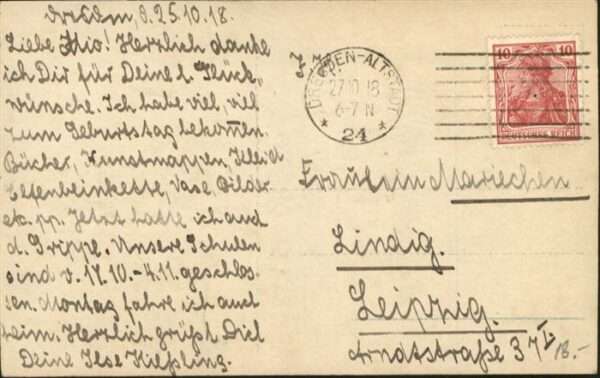 Dresden, d. 25.10.18.
Liebe Mio! Herzlich danke
ich Dir für Deine l. Glück-
wünsche. Ich habe viel, viel
zum Geburtstag bekommen.
Bücher, Kunstmappen, Kleid
Elfenbeinkette, Vase Bilder
etc. pp. Jetzt hatte ich auch
d. Grippe. Unsere Schulen
sind v. 17.10.-4.11. geschlos-
sen. Montag fahre ich auch
heim. Herzlich grüßt Dich
Deine Ilse Kießling.
DRESDEN-ALTSTADT
27.10.18
6-7 N
* 24 *
10 10
DEUTSCHES REICH
Fräulein Mariechen
Lindig.
Leipzig.
Arndtstraße 37 I.
18.-